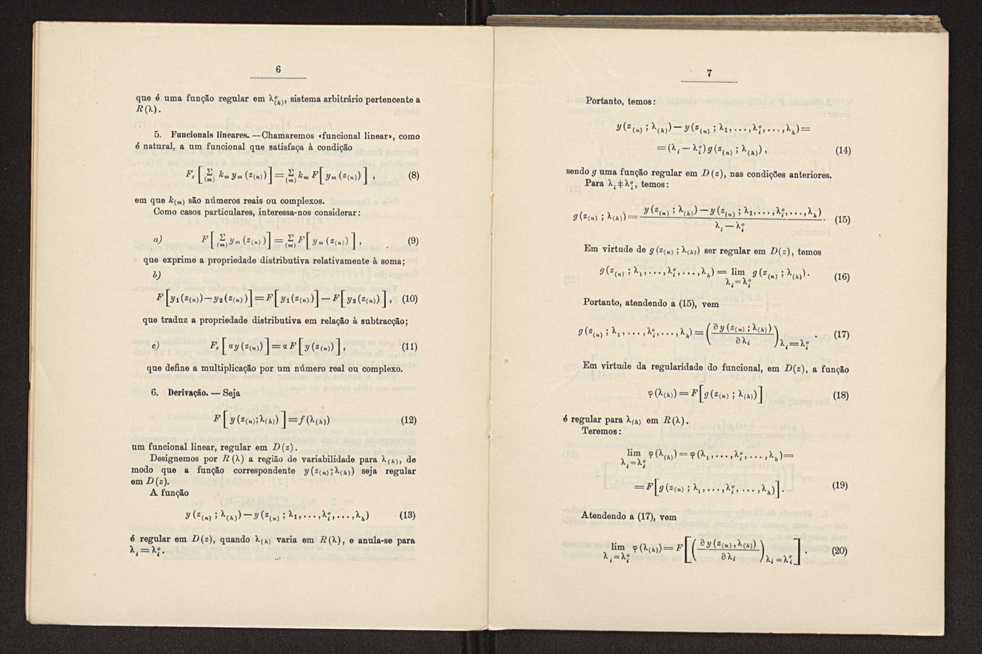 6
que é uma função regular em λ°₍ₕ₎, sistema arbitrário pertencente a
R(λ).
5. Funcionais lineares. — Chamaremos «funcional linear», como
é natural, a um funcional que satisfaça à condição
F, [ Σ₍ₘ₎ kₘ yₘ (z₍ₙ₎) ] = Σ₍ₘ₎ kₘ F [ yₘ (z₍ₙ₎) ] , (8)
em que k₍ₘ₎ são números reais ou complexos.
Como casos particulares, interessa-nos considerar :
a) F [ Σ₍ₘ₎ yₘ (z₍ₙ₎) ] = Σ₍ₘ₎ F [ yₘ (z₍ₙ₎) ] , (9)
que exprime a propriedade distributiva relativamente à soma;
b)
F [ y₁(z₍ₙ₎) — y₂(z₍ₙ₎) ] = F [ y₁(z₍ₙ₎) ] — F [ y₂(z₍ₙ₎) ] , (10)
que traduz a propriedade distributiva em relação à subtracção;
c) F, [ ay (z₍ₙ₎) ] = a F [ y (z₍ₙ₎) ] , (11)
que define a multiplicação por um número real ou complexo.
6. Derivação. — Seja
F [ y (z₍ₙ₎;λ₍ₕ₎) ] = f (λ₍ₕ₎) (12)
um funcional linear, regular em D(z).
Designemos por R(λ) a região de variabilidade para λ₍ₕ₎, de
modo que a função correspondente y(z₍ₙ₎;λ₍ₕ₎) seja regular
em D(z).
A função
y (z₍ₙ₎ ; λ₍ₕ₎) — y (z₍ₙ₎ ; λ₁, . . . , λ°ᵢ, . . . , λₕ) (13)
é regular em D(z), quando λ₍ₕ₎ varia em R(λ), e anula-se para
λᵢ = λ°ᵢ.
7
Portanto, temos :
y (z₍ₙ₎ ; λ₍ₕ₎) — y (z₍ₙ₎ ; λ₁, . . . , λ°ᵢ, . . . , λₕ) =
= (λᵢ — λ°ᵢ) g (z₍ₙ₎ ; λ₍ₕ₎) , (14)
sendo g uma função regular em D(z), nas condições anteriores.
Para λᵢ ≠ λ°ᵢ, temos :
g (z₍ₙ₎ ; λ₍ₕ₎) = (y (z₍ₙ₎ ; λ₍ₕ₎) — y (z₍ₙ₎ ; λ₁, . . . , λ°ᵢ, . . . , λₕ)) / (λᵢ — λ°ᵢ) . (15)
Em virtude de g (z₍ₙ₎ ; λ₍ₕ₎) ser regular em D(z), temos
g (z₍ₙ₎ ; λ₁, . . . , λ°ᵢ, . . . , λₕ) = lim g (z₍ₙ₎ ; λ₍ₕ₎) . (16)
λᵢ = λ°ᵢ
Portanto, atendendo a (15), vem
g (z₍ₙ₎ ; λ₁, . . . , λ°ᵢ, . . . , λₕ) = (∂ y (z₍ₙ₎ ; λ₍ₕ₎) / ∂ λᵢ) λᵢ = λ°ᵢ . (17)
Em virtude da regularidade do funcional, em D(z), a função
φ (λ₍ₕ₎) = F [ g (z₍ₙ₎ ; λ₍ₕ₎) ] (18)
é regular para λ₍ₕ₎ em R(λ).
Teremos :
lim φ (λ₍ₕ₎) = φ (λ₁, . . . , λ°ᵢ, . . . , λₕ) =
λᵢ = λ°ᵢ
= F [ g (z₍ₙ₎ ; λ₁, . . . , λ°ᵢ, . . . , λₕ) ] . (19)
Atendendo a (17), vem
lim φ (λ₍ₕ₎) = F [ (∂ y (z₍ₙ₎, λ₍ₕ₎) / ∂ λᵢ) λᵢ = λ°ᵢ ] . (20)
λᵢ = λ°ᵢ